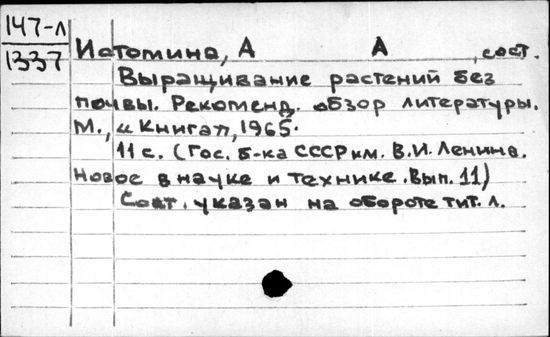 147-л
1337
Истомина, А А , сост.
Выращивание растений без
почвы. Рекоменд. обзор литературы.
М., "Книга", 1965.
11 с. (Гос. б-ка СССР им. В.И. Ленина.
Новое в науке и технике. Вып. 11)
Сост. указан на обороте тит. л.